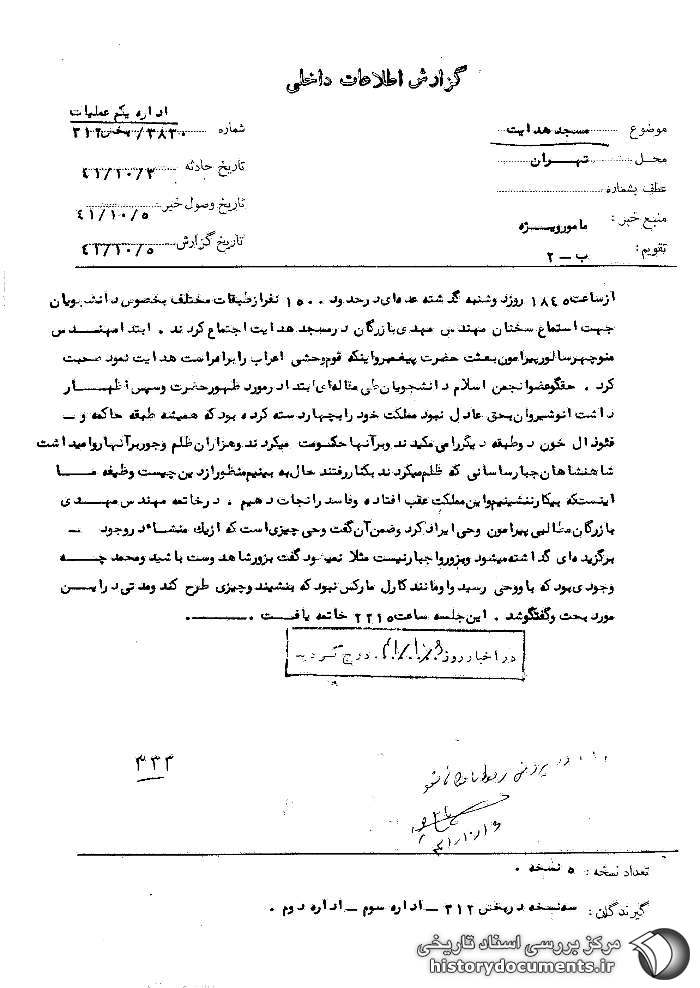 گزارش اطلاعات داخلی
موضوع مسجد هدایت
محل تهران
عطف بشماره
منبع خبر: مامور ویژه
تقویم: ب - ۲
اداره یکم عملیات
شماره ۳۸۳۰/بخش ۳۱۲
تاریخ حادثه ۴۱/۱۰/۳
تاریخ وصول خبر ۴۱/۱۰/۵
تاریخ گزارش ۴۱/۱۰/۵
از ساعت ۱۸۴۵ روز دوشنبه گذشته عده‌ای در حدود ۱۵۰۰ نفر از طبقات مختلف بخصوص دانشجویان
جهت استماع سخنان مهندس مهدی بازرگان در مسجد هدایت اجتماع کردند . ابتدا مهندس
منوچهر سالور پیرامون بعثت حضرت پیغمبر و اینکه قوم وحشی اعراب را براه راست هدایت نمود صحبت
کرد . حقگو عضو انجمن اسلام دانشجویان طی مقاله‌ای ابتدا در مورد ظهور حضرت و سپس اظهار
داشت انوشیروان بحق عادل نبود مملکت خود را بچهار دسته کرده بود که همیشه طبقه حاکمه و -
فئودال خون دو طبقه دیگر را می مکیدند و بر آنها حکومت میکردند و هزاران ظلم و جور بر آنها روا میداشت
شاهنشاهان جبار ساسانی که ظلم میکردند بکنار رفتند حال به بینیم منظور از دین چیست وظیفه ما
اینستکه بیکار ننشینیم و این مملکت عقب افتاده و فاسد را نجات دهیم . در خاتمه مهندس مهدی
بازرگان مطالبی پیرامون وحی ایراد کرد و ضمن آن گفت وحی چیزی است که از یک منشاء در وجود -
برگزیده‌ای گذاشته میشود و بزور و اجبار نیست مثلا نمیشود گفت بزور شاهدوست باشید و محمد چه
وجودی بود که باو وحی رسید او مانند کارل مارکس نبود که بنشیند و چیزی طرح کند و مدتی در این
مورد بحث و گفتگو شد . این جلسه ساعت ۲۲۱۵ خاتمه یافت .
در اخبار روز درج گردید
۳۳۴
۴۱/۱۰/۱۶
تعداد نسخه : ۵ نسخه .
گیرندگان : سه نسخه در بخش ۳۱۲ - اداره سوم - اداره دوم .
مرکز بررسی اسناد تاریخی
historydocuments.ir